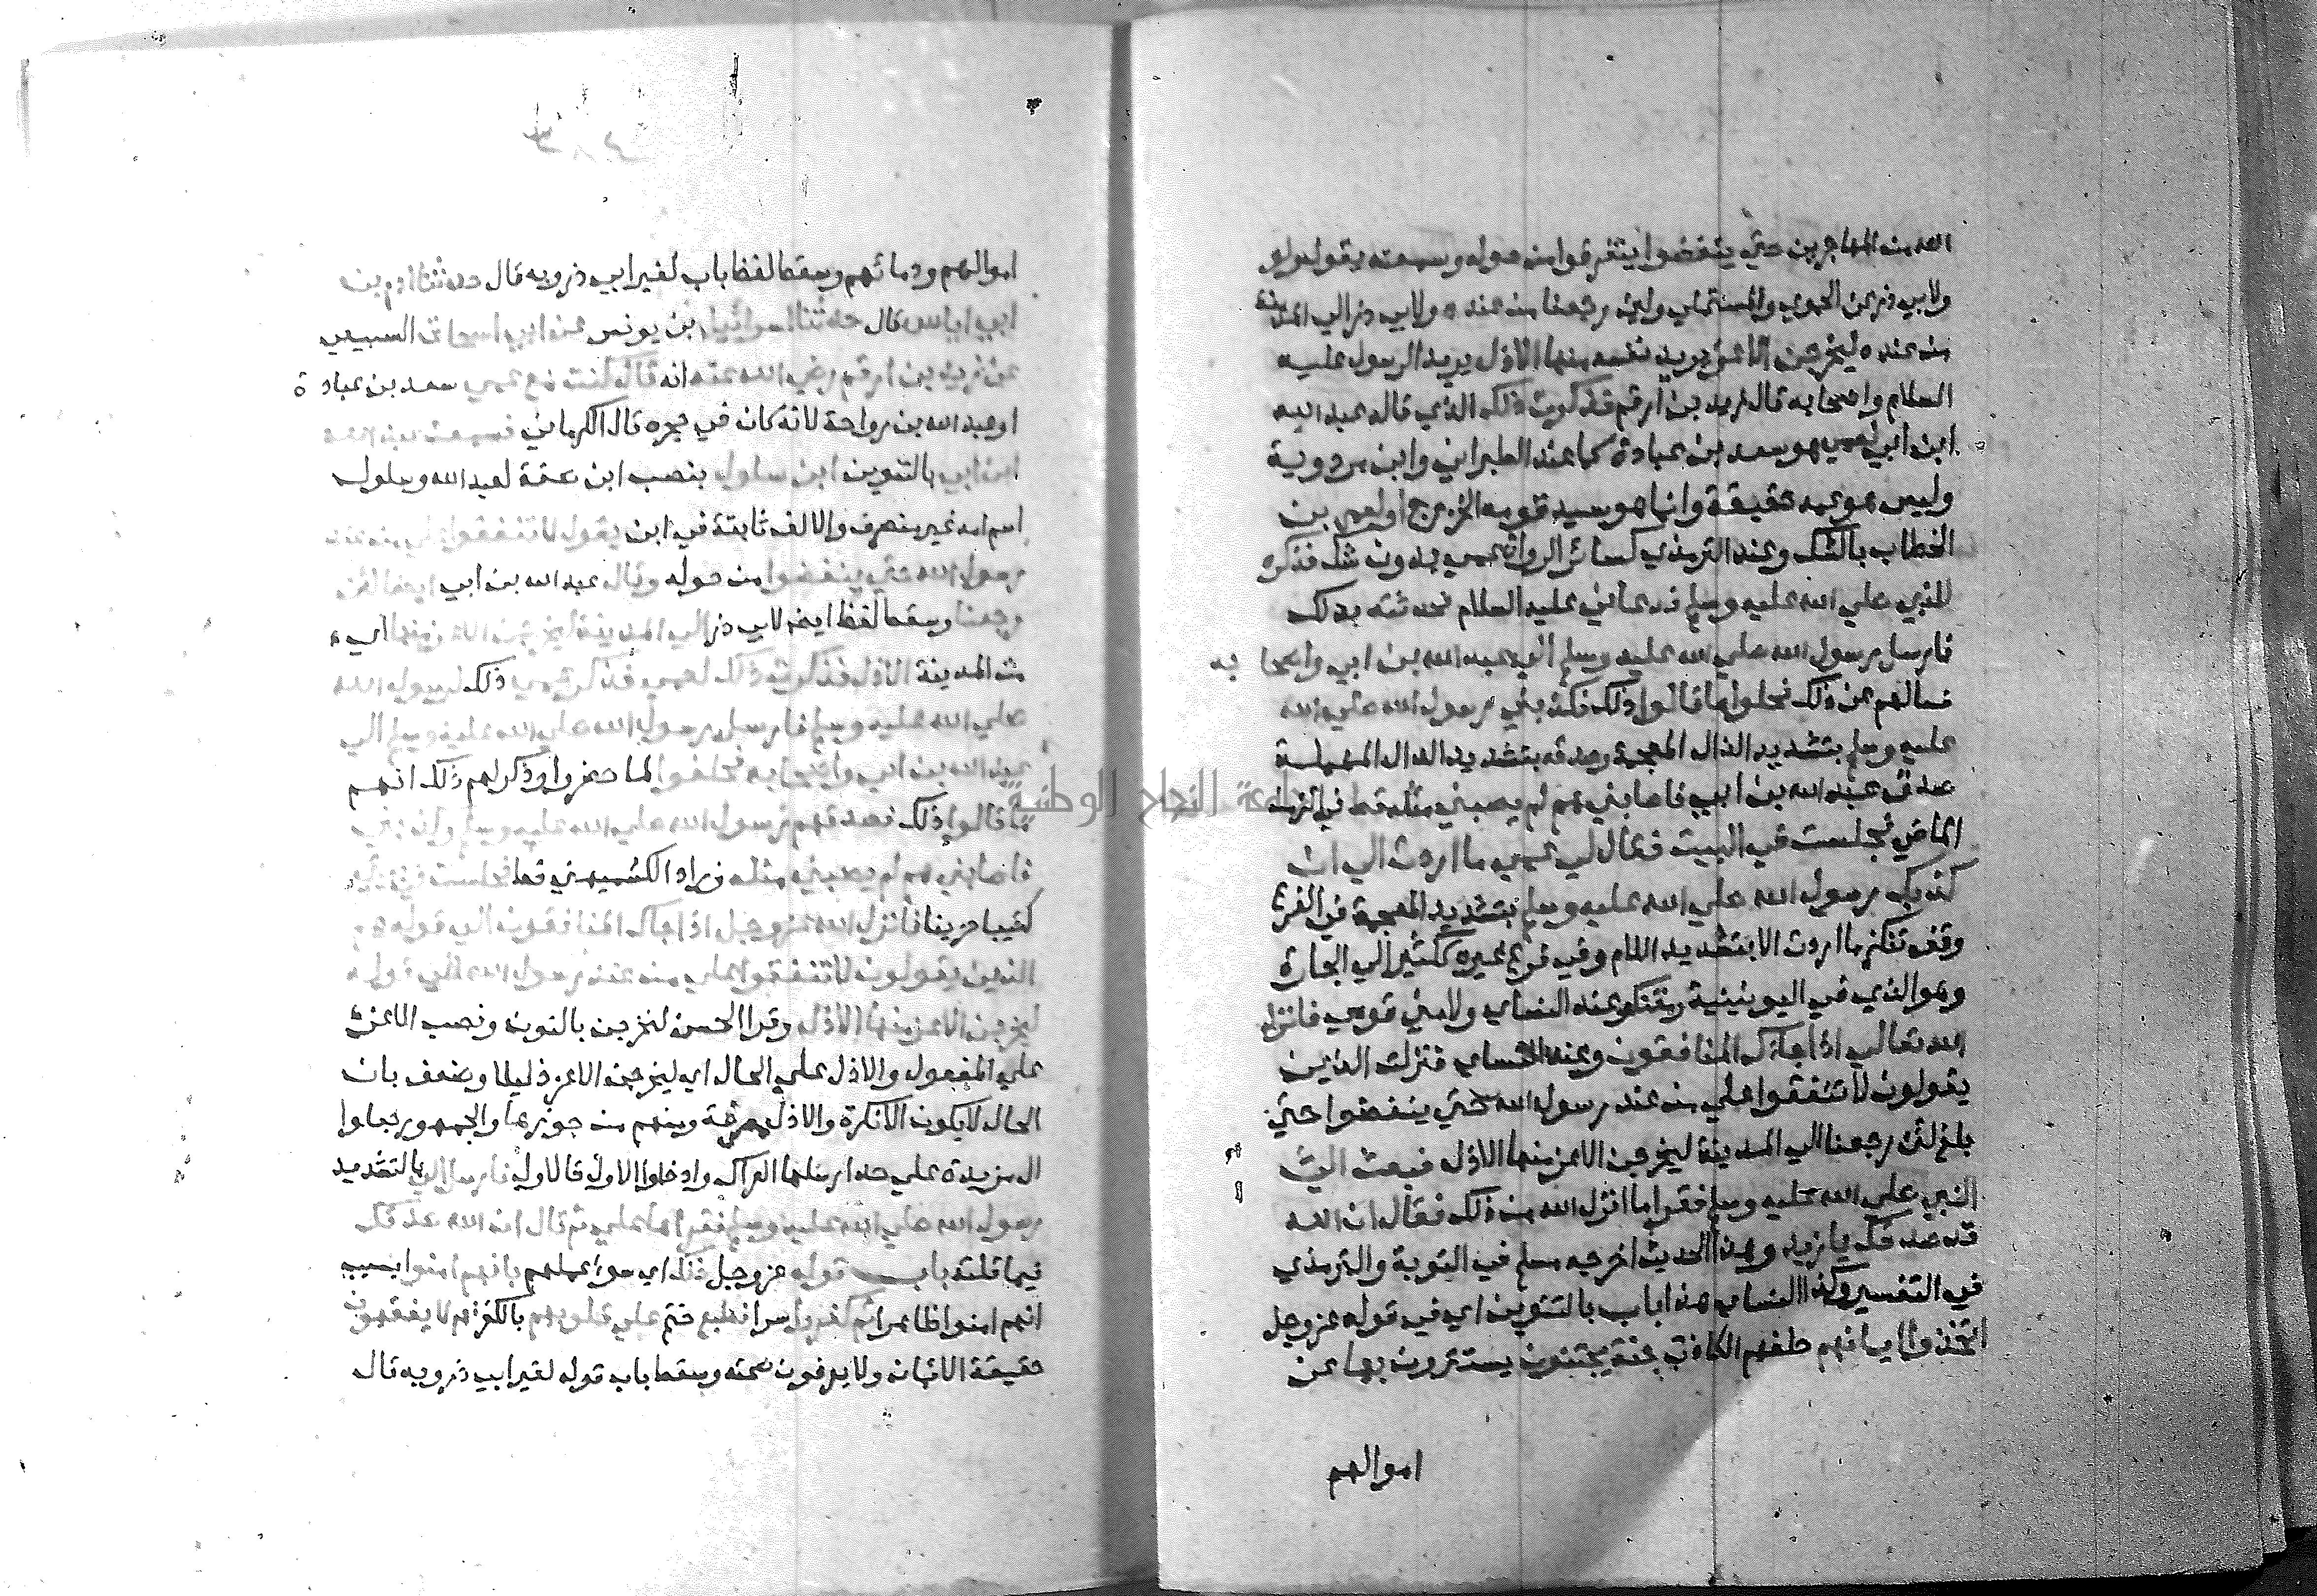 الله من المهاجرين حتي ينفضوا يتفرقوا من حوله وسمعته يقول ولو
ولابي ذر عن الحموي والمستملي ولئن رجعنا من عنده ولابي ذر الي المدينة
من عنده ليخرجن الاعز يريد نفسه منها الاذل يريد الرسول عليه
السلام واصحابه قال زيد بن ارقم فذكرت ذلك الذي قاله عبد الله
ابن ابي لعمي هو سعد بن عبادة كما عند الطبراني وابن مردوية
وليس هو عمه حقيقة وانما هو سيد قومه الخزرج او لعمر بن
الخطاب بالشك وعند الترمذي كسائر الرواة لعمي بدون شك فذكره
للنبي صلي الله عليه وسلم فدعاني عليه السلام فحدثته بذلك
فارسل رسول الله صلي الله عليه وسلم الي عبد الله بن ابي واصحا به
فسالهم عن ذلك فحلوا ما قالوا ذلك فكذبني رسول الله صلي الله
عليه وسلم بتشديد الذال المعجمة وصدقه بتشديد الدال المهملة
صدق عبد الله بن ابي فاصابني هم لم يصبني مثله قط في الزمن
الماضي فجلست في البيت فقال لي عمي ما اردت الي ان
كذبك رسول الله صلي الله عليه وسلم بتشديد المعجمة في الفرع
وقف تنكز ما اردت الا بتشديد اللام وفي فرع غيره كثير الي الجارة
وهو الذي في اليونينية ومقتك وعند النساي ولامني قومي فانزل
الله تعالي اذا جاءك المنافقون وعند النساي فنزلت الذين
يقولون لا تنفقوا علي من عند رسول الله حتي ينفضوا حتي
بلغ لئن رجعنا الي المدينة ليخرجن الاعز منها الاذل فبعث الي
النبي صلي الله عليه وسلم فقرا ما انزل الله من ذلك فقال ان الله
قد صدقك يا زيد وهذا الحديث اخرجه مسلم في التوبة والترمذي
في التفسير وكذا النساي هذا باب بالتنوين اي في قوله عز وجل
اتخذوا ايمانهم حلفهم الكاذب جنة يجتنون يستترون بها عن
اموالهم
اموالهم ودمائهم وسقط لفظ باب لغير ابي ذر وبه قال حدثنا ادم بن
ابي اياس قال حدثنا اسرائيل بن يونس عن ابي اسحاق السبيعي
عن زيد بن ارقم رضي الله عنه انه قال كنت مع عمي سعد بن عبادة
او عبد الله بن رواحة لانه كان في حجره قال الكرماني فسمعت عبد الله
ابن ابي بالتنوين ابن سلول بنصب ابن صفة لعبد الله وسلول
اسم امه غير منصرف والالف ثابتة في ابن يقول لا تنفقوا علي من عند
رسول الله حتي ينفضوا من حوله وقال عبد الله بن ابي ايضا لئن
رجعنا وسقط لفظ ايضا لابي ذر الي المدينة ليخرجن الاعز منها اي
من المدينة الاذل فذكرت ذلك لعمي فذكر عمي ذلك لرسول الله
صلي الله عليه وسلم فارسل رسول الله صلي الله عليه وسلم الي
عبد الله بن ابي واصحابه فحلفوا لما حضروا وذكر لهم ذلك انهم
ما قالوا ذلك فصدقهم رسول الله صلي الله عليه وسلم وكذبني
فاصابني هم لم يصبني مثله زاد الكشميهني قط فجلست في بيتي
كئيبا حزينا فانزل الله عز وجل اذا جاك المنافقون الي قوله هم
الذين يقولون لا تنفقوا علي من عند رسول الله الي قوله
ليخرجن الاعز منها الاذل وقرا الحسن لنخرجن بالنون ونصب الاعز
علي المفعول والاذل علي الحال اي لنخرجن الاعز ذليلا وضعف بان
الحال لا يكون الا نكرة والاذل معرفة ومنهم من جوزها والجمهور جعلوا
ال مزيدة علي حد ارسلها العراك وادخلوا الاول فالاول فارسل الي بالتشديد
رسول الله صلي الله عليه وسلم فقراها علي ثم قال ان الله صدقك
فيما قلته باب قوله عز وجل ذلك اي سوا عملهم بانهم امنوا بسبب
انهم امنوا ظاهرا ثم كفروا سرا فطبع ختم علي قلوبهم بالكفر فهم لا يفقهون
حقيقة الايمان ولا يعرفون صحته وسقط باب قوله لغير ابي ذر وبه قال
جامعة النجاح الوطنية